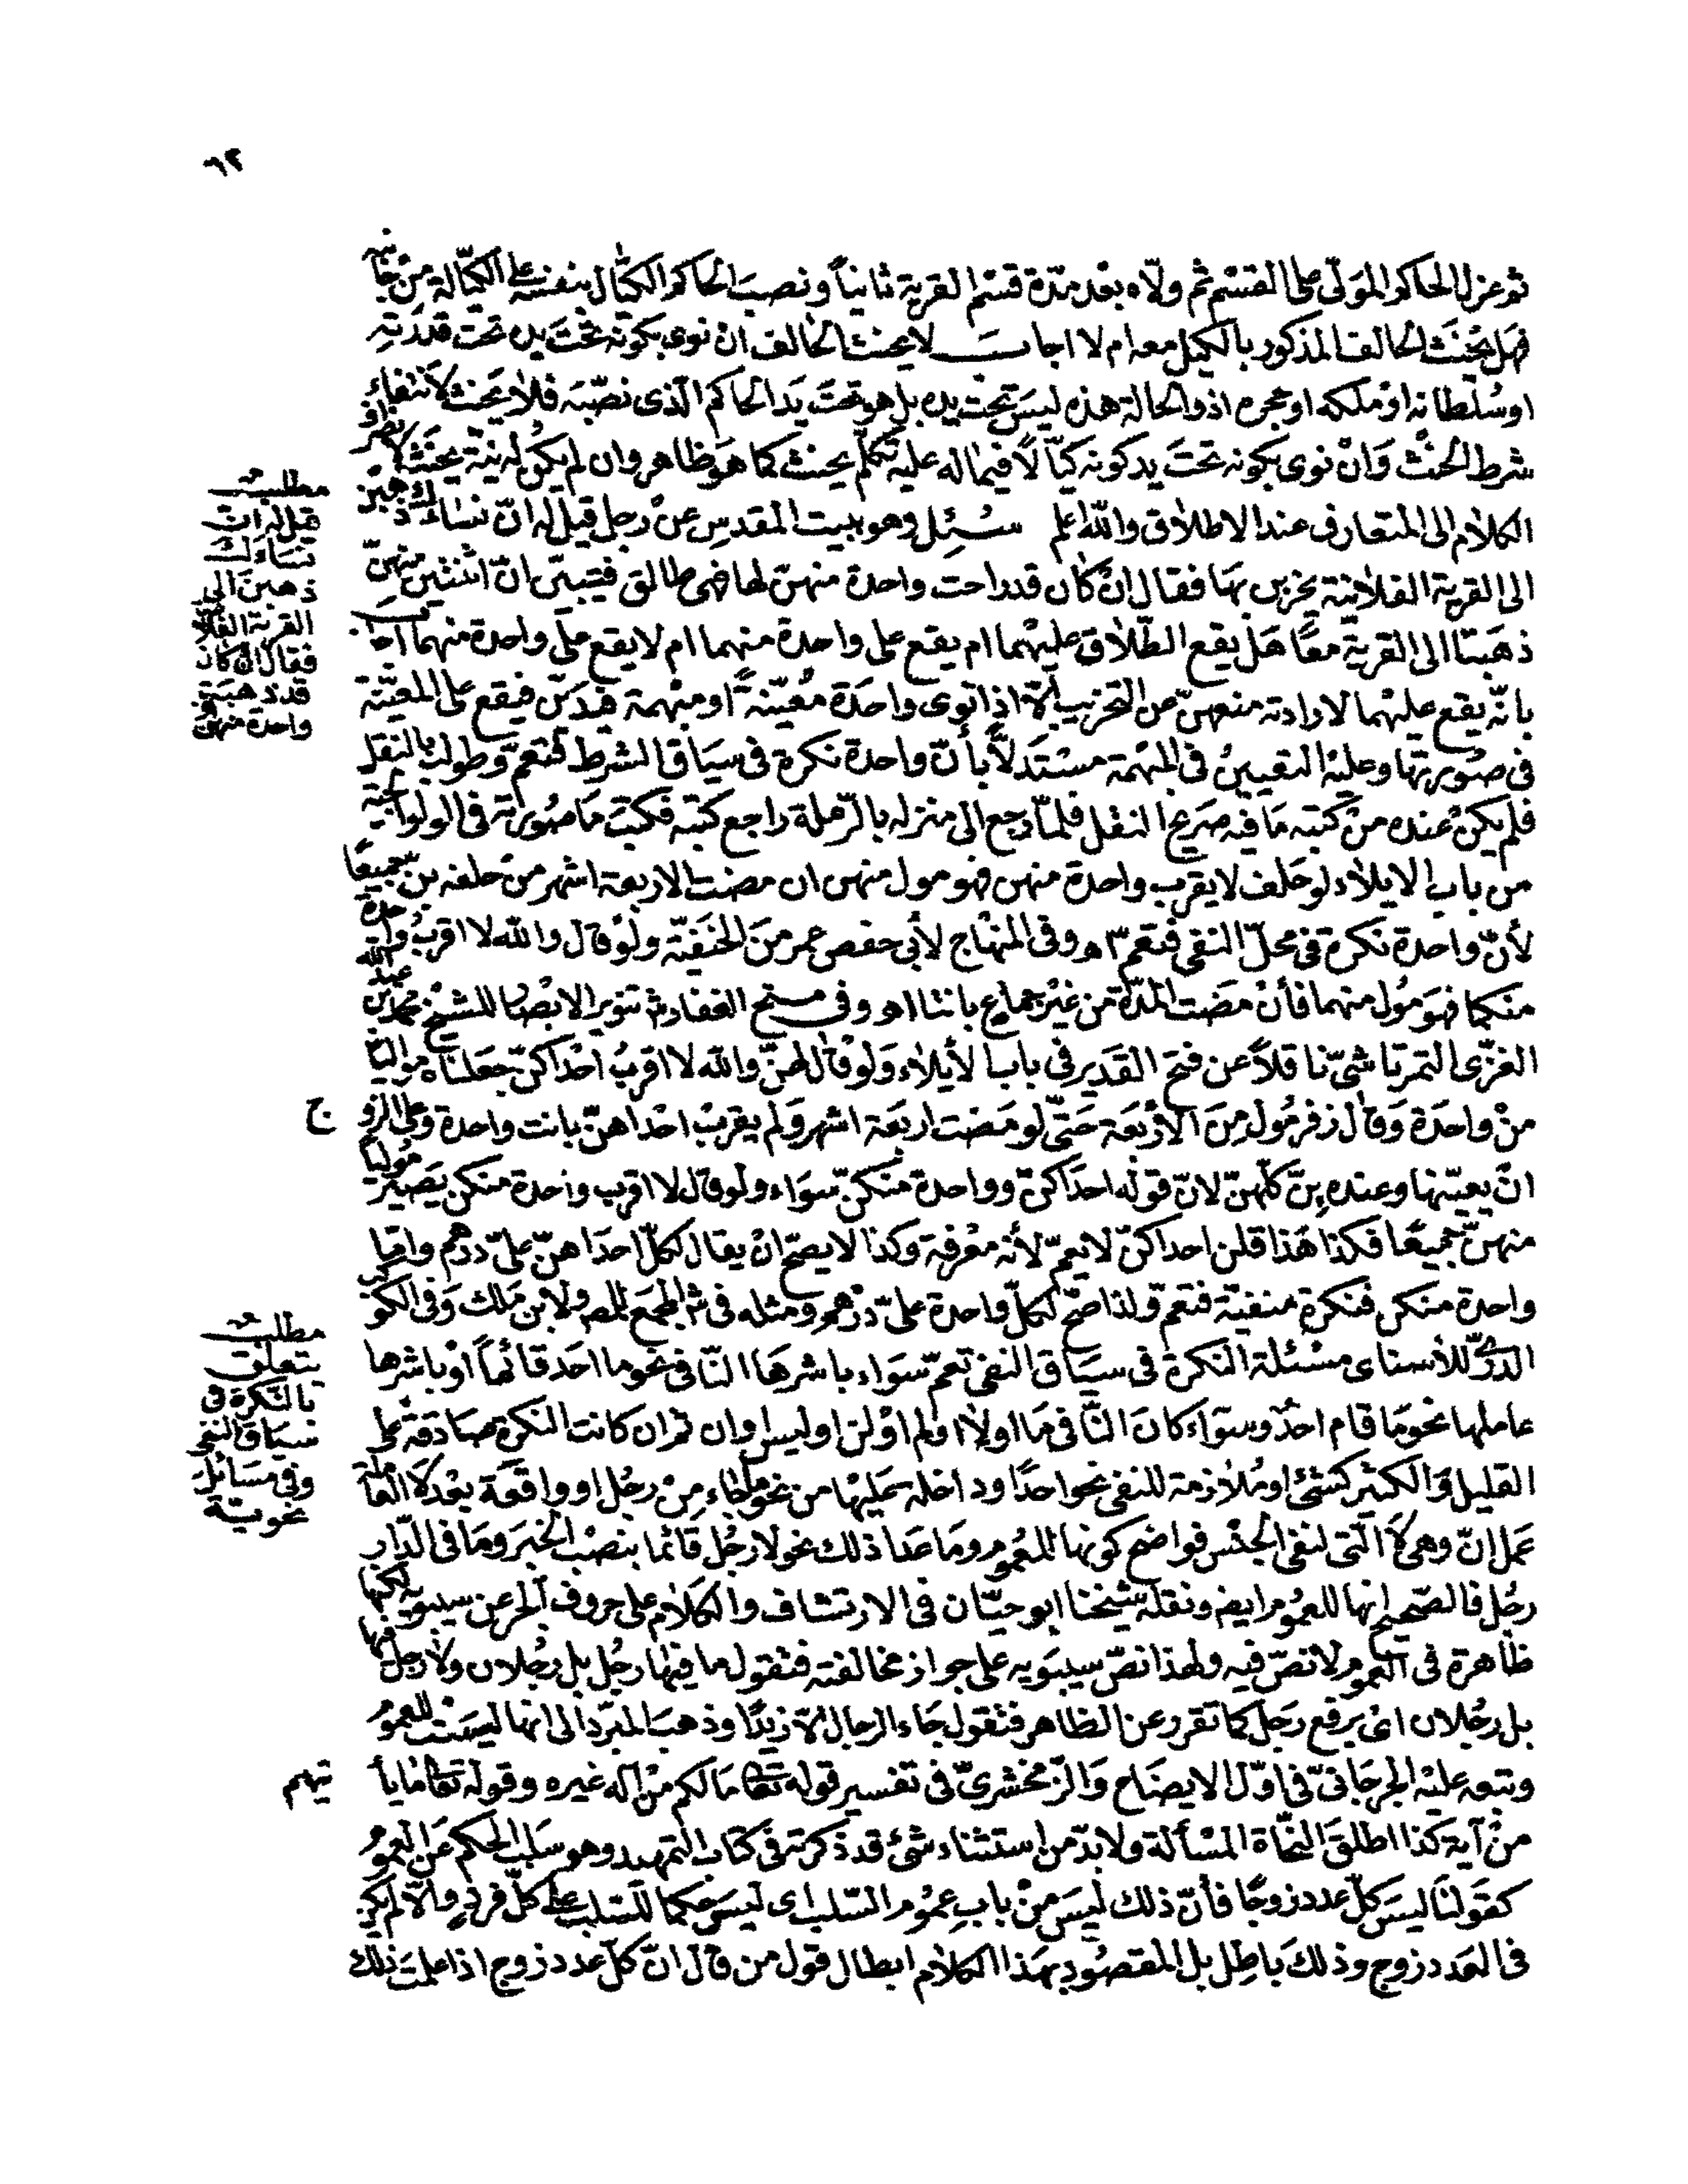 ٦٢
ثم عزل الحاكم المولّى على القسم ثم ولّاه بعد مدّة قسْم القرية ثانياً ونصبَ الحاكم الكيّال بنفسه على الكيّالة مِنْ جانبه
فهل يحْنَث الحالف المذكور بالكيل معه ام لا اجاب لا يحنث الحالف ان نوى بكونه تحْتَ يده تحت قدرَتِه
اوسُلْطانه اوْ ملكه او حجره اذ والحالة هذه ليسَ تحْت يده بل هو تحتَ يَد الحاكم الّذى نصّبَه فلا يَحنث لانتفاء
شرط الحنْث وَانْ نوى بكونه تحتَ يده كونه كيّالاً فيما له عليه تكلّم يحنث كما هوَ ظاهر وان لم يكن له نيّة يحنَث لانصراف
الكلام الى المتعارف عند الاطلاق والله اعلم سُئِل وهو ببيت المقدسِ عنْ رجل قيل له انّ نسَاءك ذهبْن
الى القرية الفلانيّة يخربن بهَا فقال انْ كان قد راحت واحدة منهنّ لهاضى طالق فتبيّن انّ اثنتين منهنّ
ذهَبَتا الى القرية معًا هَل يقع الطّلاق عليْهما ام يقع على واحدة منهما ام لا يقع على واحدة منهما اجاب
بانّه يقع عليهما لارادته منعهنّ عن التخريب الّا اذا نوى واحدَة مُعيّنةً او مبْهمة فيقع على المعيّنة
فى صُورتها وعليْه التعيينُ فى المبْهمة مسْتَدلاًّ بأنّ واحدة نكرة فى سيَاق الشرط فتعمّ وطولب بالنقل
فلم يكنْ عنده منْ كتبه مَا فيه صَريح النقل فلمّا رجع الى منزله بالرّملة راجع كتبه فكتبَ مَا صُورته فى الولوالجية
من باب الايلاء لو حَلف لا يقرب واحدة منهن فهو مول منهن ان مضت الاربعة اشهر منْ حلفه بنّ جميعًا
لأنّ واحدة نكرة فى محلّ النفى فتعم اهـ وفى المنهاج لأبى حفص عمر منَ الحَنَفيّة ولوْ قال والله لا اقربُ واحدة
منكما فهوَ مُول منهما فأنْ مَضَت المدّة من غيْر جماع بانتا اهـ وفى منح الغفار شرْ تنوير الابْصار للشيْخ محمّد بن عبد الله
الغزّى التمرتاشىّ ناقلاً عن فتح القَدير فى باب الأيلاء وَلوْ قال لهنّ والله لا اقربُ احْداكنّ جَعلناه موليًا
منْ واحدَة وَقال زفر مُول مِنَ الأرْبعَة حَتّى لو مَضت اربعَة اشهر وَلم يقربْ احْداهنّ بانت واحدة وعلى الزوج
انْ يعيّنها وعنده بِنّ كلّهنّ لانّ قوله احدَاكنّ وواحدة منكنّ سوَاء ولو قال لا اقرب واحدة منكن يَصيْر موليًا
منهنّ جميعًا فكذا هَذا قلن احداكنّ لا يعمّ لأنه معْرفة وكذا لا يصحّ انْ يقال لكلّ احدَاهنّ علىّ درهم وامّا
واحدة منكن فنكرة منفيّة فتعمّ ولذا صحّ لكلّ واحدة علىّ درْهم ومثله فى شر المجمَع للمص ولابن مَلك وَفى الكوكب
الدرّى للأسناى مسْئلة النكرة فى سيَاق النفى تعمّ سَوَاء باشرهَا النّافى نحو ما احَد قائماً اوْ باشرها
عاملها نحو مَا قام احدٌ وسوَاء كانَ النّافى مَا او لا او لم اوْ لن او ليس او ان ثم ان كانت النكرة صَادقة على
القليل وَالكثير كشئ او مُلازمة للنفى نحو احدٍ او داخلة عَليْها من نحو ما جاء مِنْ رجُل او واقعَة بعْد لَا العَاملة
عَمل انّ وهى لَا الّتى لنفى الجنْس فواضح كونها للعُموم ومَا عَدا ذلك نحو لا رجُل قائما بنصْب الخبَر ومَا فى الدّار
رجُل فالصّحيح انها للعمُوم ايضا ونقله شيْخنا ابو حيّان فى الارتشاف والكلام على حروف الجر عن سيبويه لكنها
ظَاهرة فى العموم لا نصّ فيه ولهذا نصّ سيبَويه على جواز مخالفته فتقول ما فيها رجُل بل رجُلان ولا رجل فيها
بل رجُلان اىْ يرفع رَجل كما تقرر عن الظاهر فتقول جَاء الرجال الّا زيدًا وذهبَ المبرّد الى انها ليسَت للعموم
وتبعه عليْه الجرجَانىّ فى اوّل الايضَاح وَالزّمخشرىّ فى تفسير قوله تعَا مَا لكم منْ اله غيره وقوله تعَا مَا يأتيهم
منْ آية كذا اطلقَ النّحَاة المسْألة ولا بدّ من استثناء شئ قد ذكرته فى كتاب التمْهيد وهو سَلب الحكم عَن العمُوم
كقوَلنَا ليسَ كلّ عدد زوجًا فأنّ ذلك ليسَ منْ باب عمُوم السّلب اى ليسَ حكما للسّلب على كلّ فردٍ والّا لم يكن
فى العَدد زوج وذلكَ بَاطِل بل المقصُود بهَذا الكلام ابطال قول من قال انّ كلّ عدد زوج اذا علمتَ ذلك
مطلب
قيل له ان
نسَاءَك
ذهبنَ الى
القرية الفلا
فقال ان كان
قد ذهبَت
واحدة منهنّ
مطلب
يتعلق
بالنّكرة فى
سيَاق النفى
وفى مسَائل
نحويّة